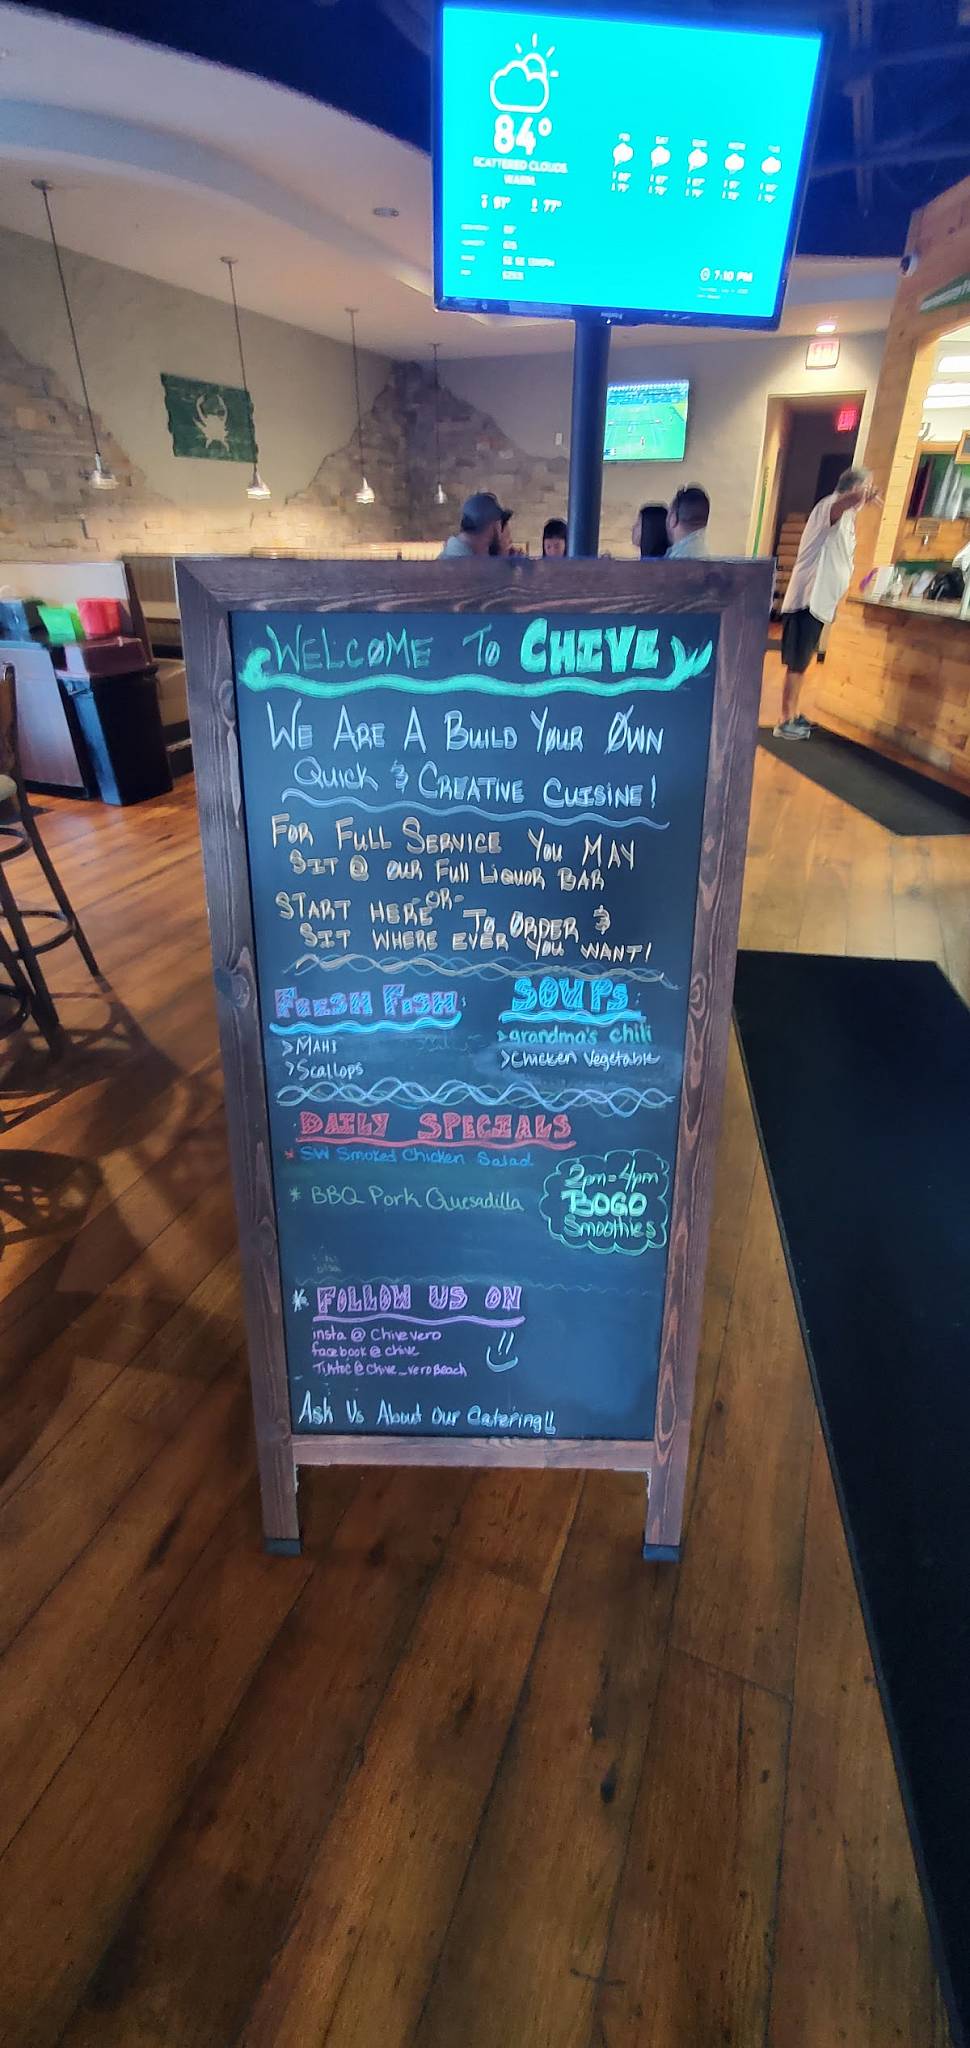 84°
SCATTERED CLOUDS
WARM
77°
FRI SAT SUN MON TUE
7:10 PM
EXIT
WELCOME TO CHIVE
WE ARE A BUILD YOUR OWN
QUICK & CREATIVE CUISINE!
FOR FULL SERVICE YOU MAY
SIT @ OUR FULL LIQUOR BAR
-OR-
START HERE TO ORDER &
SIT WHERE EVER YOU WANT!
FRESH FISH:
>MAHI
>Scallops
SOUPS:
>grandma's chili
>Chicken Vegetable
DAILY SPECIALS
* SW Smoked Chicken Salad
* BBQ Pork Quesadilla
2pm-4pm
BOGO
Smoothies
* FOLLOW US ON
insta @ Chivevero
facebook @ chive
Tiktoc @ Chive_veroBeach
Ask Us About Our Catering!!